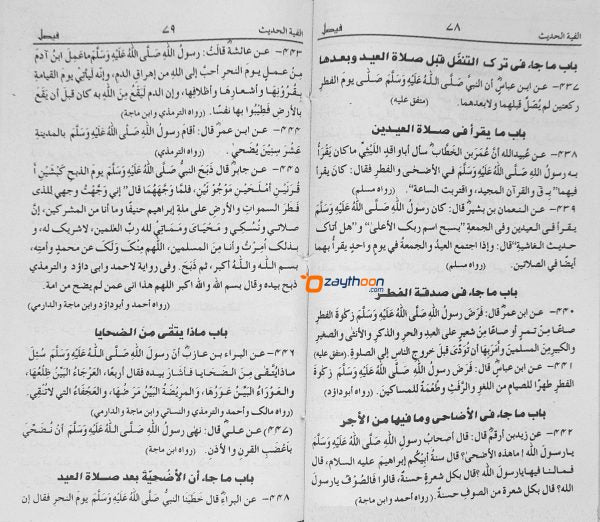 الفية الحديث ٧٨ فيصل
باب ما جاء فى ترك التنفل قبل صلاة العيد وبعدها
٤٣٧- عن ابن عباسؓ أن النبي صَلَّى اللهُ عَلَيْهِ وَسَلَّمَ صَلَّى يوم الفطر
ركعتين لم يُصَلِّ قبلهما ولابعدهما. (متفق عليه)
باب ما يقرأ فى صلاة العيدين
٤٣٨- عن عبيدالله أنَّ عُمَرَبن الخَطَّابؓ سأل أباواقدٍ اللَّيْثِيَّ ماكان يَقْرَأُ
به رسول الله صَلَّى اللهُ عَلَيْهِ وَسَلَّمَ في الأضْحى والفطر فقال: كان يقرأ
فيهما" بـ قٓ والقرآن المجيد، واقتربت الساعة". (رواه مسلم)
٤٣٩- عن النعمان بن بشيرؓ قال: كان رسول الله صَلَّى اللهُ عَلَيْهِ وَسَلَّمَ
يقرأ في العيدين وفى الجمعةِ "بسبح اسم ربك الأعلى" و"هل أتاك
حديث الغاشية" قال: وإذا اجتمع العيدُ والجمعة في يوم واحدٍ يقرأ بهما
أيضًا في الصلاتين. (رواه مسلم)
باب ما جاء فى صدقة الفطر
٤٤٠- عن ابن عمرؓ قال: فَرَضَ رسولُ الله صَلَّى اللهُ عَلَيْهِ وَسَلَّمَ زكوةَ الفطرِ
صاعًا من تمرٍ أو صاعًا من شعيرٍ على العبدِ والحرِ والذكرِ والأنثى والصغيرِ
والكبيرِمن المسلمينَ وأمَرَبِهَا أن تُؤَدّى قبلَ خروجِ الناسِ إلى الصلوةِ.(متفق عليه)
٤٤١- عن ابن عباسؓ قال: فَرَضَ رسول الله صَلَّى اللهُ عَلَيْهِ وَسَلَّمَ زكوةَ
الفطرِ طهرًا للصيامِ من اللغوِ والرَّفَثِ وطُعْمَةً للمساكينَ. (رواه أبوداؤد)
باب ما جاء فى الأضاحى وما فيها من الأجر
٤٤٢- عن زيدبن أرقمؓ قال: قال أصحابُ رسولِ اللهِ صَلَّى اللهُ عَلَيْهِ وَسَلَّمَ
يارسولَ الله! ماهذه الأضحى؟ قال: سنةُ أبِيكُم إبراهيمَ عليه السلام، قال:
فمالنا فيهايارسولَ الله ؟قال: بكل شعرةٍ حسنةٌ، قالوا فالصُوْفُ يارسولَ
الله؟ قال: بكل شعرة من الصوفِ حسنةٌ. (رواه أحمد وابن ماجة)
الفية الحديث ٧٩ فيصل
٤٤٣- عن عائشةؓ قالتْ: رسولُ اللهِ صَلَّى اللهُ عَلَيْهِ وَسَلَّمَ ماعَمِلَ ابنُ آدمَ
مِنْ عملٍ يومَ النحرِ أحبَّ إلى اللهِ من إهراقِ الدم، وإنه ليَأتِيْ يومَ القيامةِ
بِقُرُوْنِهَا وأشعارِهَا وأظلافِهَا، وإن الدم ليَقَعُ مِنَ اللهِ بِه كان قبل أن يَقَعَ
بالأرض فَطِيْبُوا بها نفسًا. (رواه الترمذي وابن ماجة)
٤٤٤- عن ابن عمرؓ قال: أقامَ رسولُ اللهِ صَلَّى اللهُ عَلَيْهِ وَسَلَّمَ بالمدينةِ
عَشرَ سِنِيْنَ يُضحّيْ. (رواه الترمذي)
٤٤٥- عن جابرؓ قال ذَبَحَ النبيُّ صَلَّى اللهُ عَلَيْهِ وَسَلَّمَ يومَ الذبحِ كَبْشَيْنِ أ
قْرَنَيْنِ أمْلَحَيْنِ مَوْجُوْئَيْنِ، فلمَّا وَجَّهَهُمَا قال "إني وَجَّهْتُ وجهي للذى
فَطَرَ السمواتِ والأرضَ على ملةِ إبراهيمَ حنيفًا وما أنا من المشركين، إن
صلاتي ونُسُكي و مَحْيَايَ ومَمَاتي لله ربِّ العٰلمين، لاشريك له، و
بذلك أمِرْتُ وأنا مِنَ المسلمين، اللّهم مِنْكَ وَلَكَ عن محمدٍ وأمتِه،
بسم اللهِ واللهُ أكبر، ثم ذَبَحَ. وفي رواية لاحمد وابى داؤد والترمذي
ذبح بيده وقال بسم الله والله اكبر اللهم هذا انى عمن لم يضح من امة.
(رواه أحمد و أبوداؤد وابن ماجة والدارمي)
باب ماذا يتقى من الضحايا
٤٤٦- عن البراء بن عازبؓ أنَّ رسولَ اللهِ صَلَّى اللهُ عَلَيْهِ وَسَلَّمَ سُئِلَ
ماذايُتَّقى مِنَ الضحَايا فأشارَ بيدِه فقال أربعًا، العَرْجَاءُ البَيِّنُ ظَلْعُهَا،
والعَوْرَاءُ البَيِّنُ عَوَرُهَا، والمرِيْضَةُ البَيِّنُ مَرَضُهَا، والعَجْفَاءُ التى لاتُنْقِي.
(رواه مالك وأحمد والترمذي والنسائي وابن ماجة والدارمي)
(٤٤٧)- عن علىؓ قال: نهى رسولُ الله صَلَّى اللهُ عَلَيْهِ وَسَلَّمَ أنْ نُضَحِّيَ
بأعْضَبِ القَرنِ والأذنِ. (رواه ابن ماجة)
باب ما جاء أن الأضحيّة بعد صلاة العيد
٤٤٨- عن البراءؓ قال خَطَبَنَا النبيُّ صَلَّى اللهُ عَلَيْهِ وَسَلَّمَ يومَ النحرِ فقال إن
Ozaythoon.com